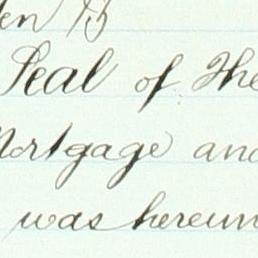 Seal of The
Mortgage and
was hereun